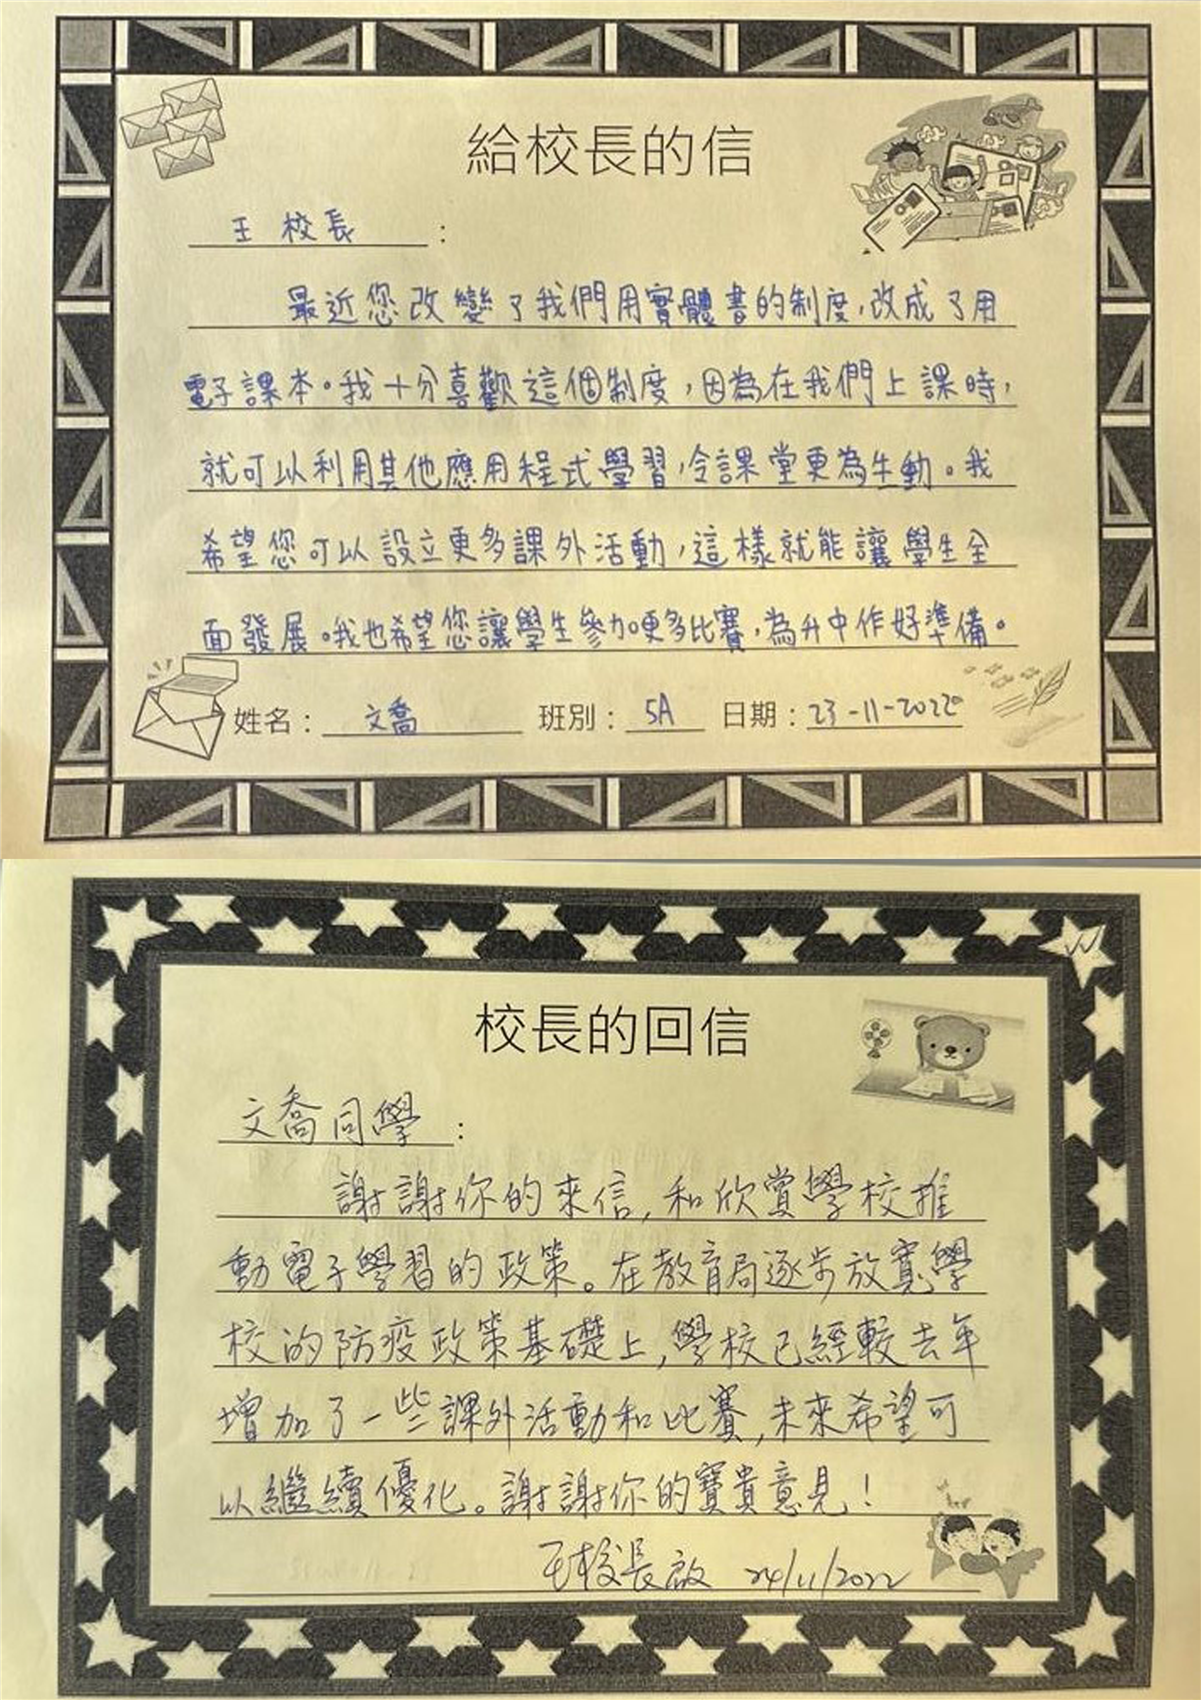 給校長的信
王校長：
最近您改變了我們用實體書的制度，改成了用
電子課本。我十分喜歡這個制度，因為在我們上課時，
就可以利用其他應用程式學習，令課堂更為生動。我
希望您可以設立更多課外活動，這樣就能讓學生全
面發展。我也希望您讓學生參加更多比賽，為升中作好準備。
姓名：文喬 班別：5A 日期：23-11-2022
校長的回信
文喬同學：
謝謝你的來信，和欣賞學校推
動電子學習的政策。在教育局逐步放寬學
校的防疫政策基礎上，學校已經較去年
增加了一些課外活動和比賽，未來希望可
以繼續優化。謝謝你的寶貴意見！
王校長啟 24/11/2022